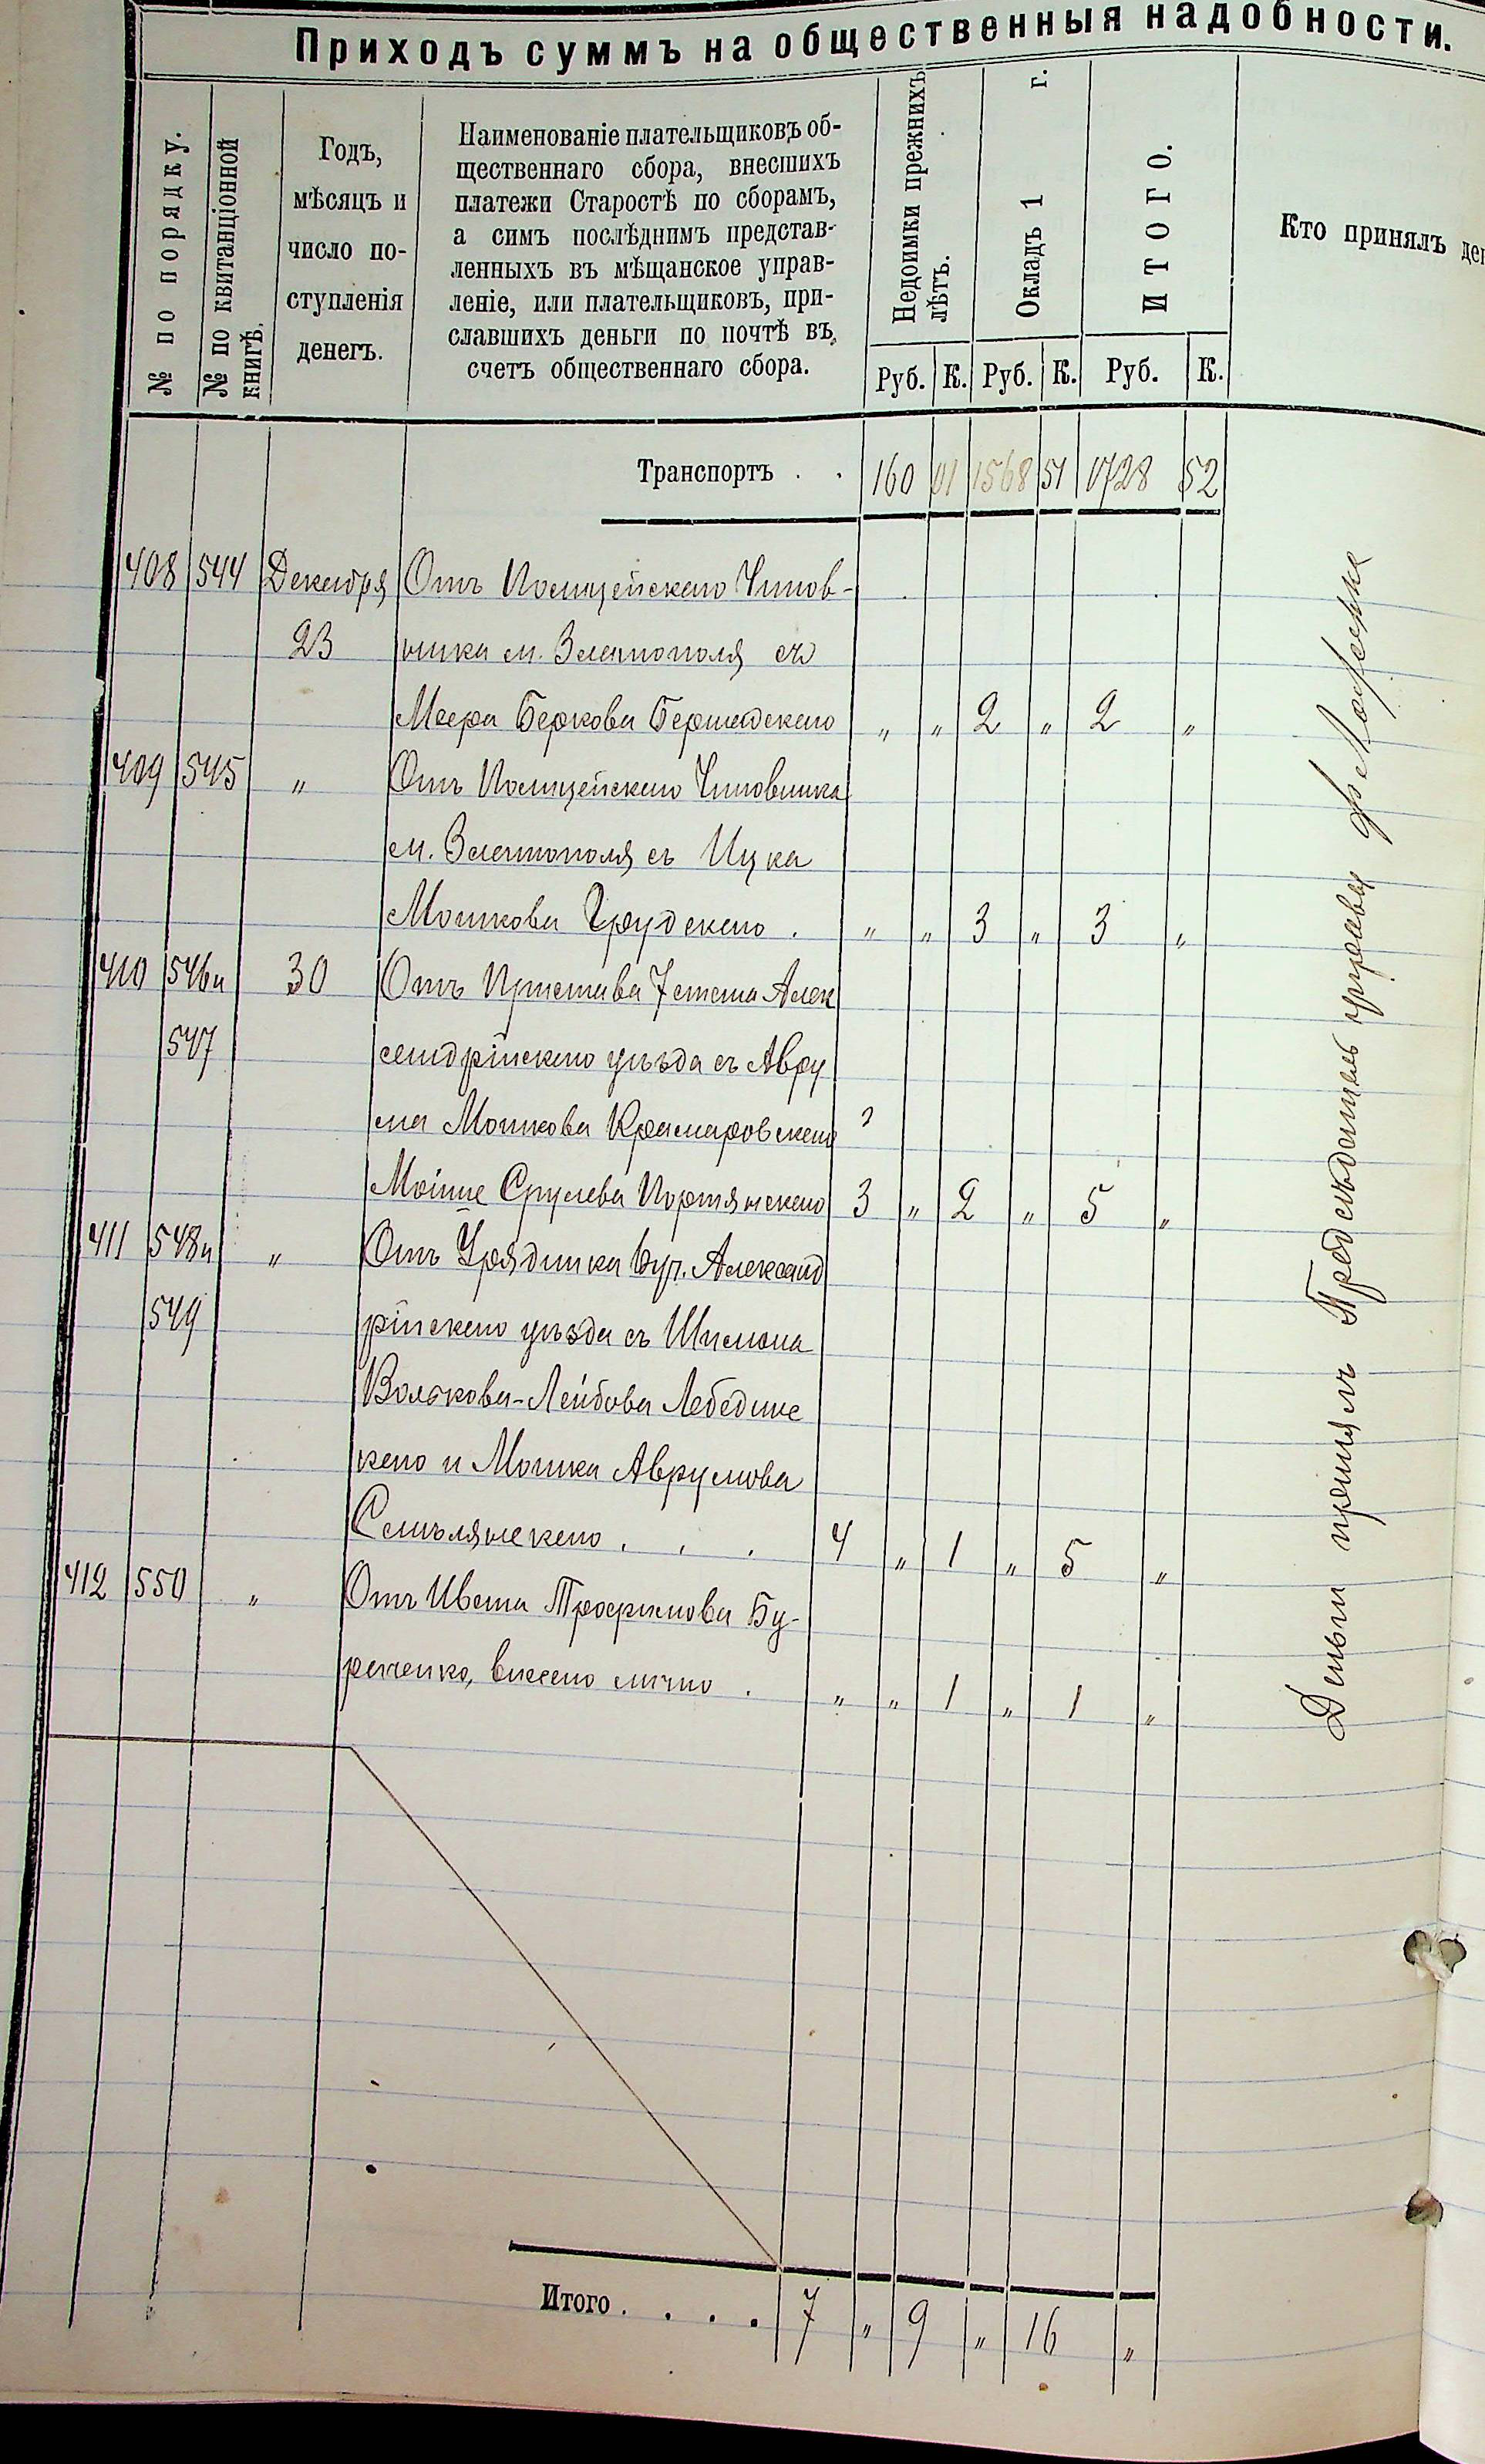 Приходъ суммъ на общественныя надобности.
№ по порядку.
№ по квитанціонной
книгѣ.
Годъ,
мѣсяцъ и
число по-
ступленія
денегъ.
Наименованіе плательщиковъ об-
щественнаго сбора, внесшихъ
платежи Старостѣ по сборамъ,
а симъ послѣднимъ представ-
ленныхъ въ мѣщанское управ-
леніе, или плательщиковъ, при-
славшихъ деньги по почтѣ въ
счетъ общественнаго сбора.
Недоимки прежнихъ
лѣтъ.
Окладъ 1 г.
ИТОГО.
Кто принялъ ден
Руб. К. Руб. К. Руб. К.
Транспортъ . . 160 01 1568 51 1728 52
408 544 Декабря Отъ Полицейскаго Чинов-
23 ника м. Златополя съ
Меера Беркова Бершадскаго " " 2 " 2 "
409 545 " Отъ Полицейскаго Чиновника
м. Златополя съ Ицка
Мошкова Грудскаго . " " 3 " 3 "
410 546 и 30 Отъ Пристава 7 стана Алек
547 сандрійскаго уѣзда съ Авру
ма Мошкова Крамаровскаго
Мойше Срулева Портянскаго 3 " 2 " 5 "
411 548 и " Отъ Урядника 6 уч. Александ
549 рійскаго уѣзда съ Шлемона
Волькова-Лейбова Лебединс
каго и Мошка Аврумова
Смѣлянскаго . . . 4 " 1 " 5 "
412 550 " Отъ Ивана Трофимова Бу-
раченко, внесено лично . " " 1 " 1 "
Итого . . . . 7 " 9 " 16 "
Деньги принялъ Предсѣдатель управы